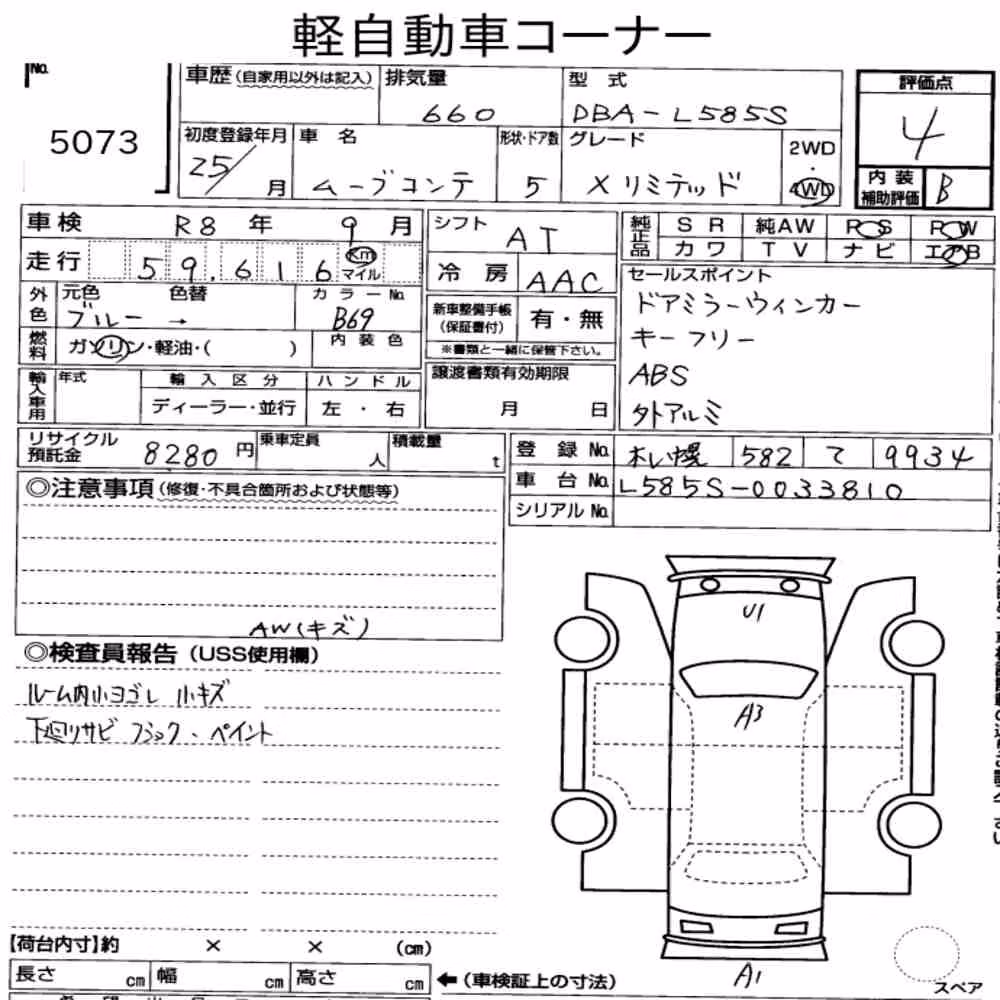 軽自動車コーナー
No.
5073
車歴(自家用以外は記入) 排気量 660 型式 DBA-L585S
評価点 4
初度登録年月 25/ 月 車名 ムーブコンテ 形状・ドア数 5 グレード Xリミテッド 2WD・4WD
内装補助評価 B
車検 R8年 9月
走行 59,616 Km マイル
シフト AT
冷房 AAC
純正品 SR 純AW PS PW
カワ TV ナビ エアB
外色 元色 色替 カラーNo.
ブルー → B69
燃料 ガソリン・軽油・( ) 内装色
新車整備手帳(保証書付) 有・無
※書類と一緒に保管下さい。
セールスポイント
ドアミラーウィンカー
キーフリー
ABS
外アルミ
輸入車用 年式 輸入区分 ハンドル
ディーラー・並行 左・右
譲渡書類有効期限
月 日
リサイクル預託金 8280円 乗車定員 人 積載量 t
登録No. 札幌 582 て 9934
車台No. L585S-0033810
シリアルNo.
◎注意事項(修復・不具合箇所および状態等)
AW(キズ)
◎検査員報告(USS使用欄)
ルーム内小ヨゴレ 小キズ
下廻りサビ フラック、ペイント
U1
A3
A1
【荷台内寸】約 × × (cm)
長さ cm 幅 cm 高さ cm
←(車検証上の寸法)
スペア